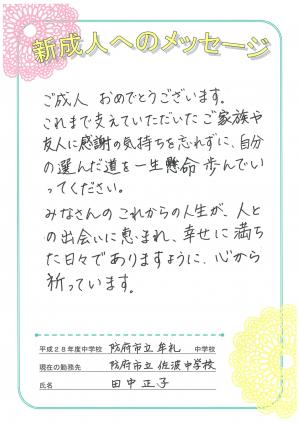 新成人へのメッセージ
ご成人 おめでとうございます。
これまで支えていただいたご家族や
友人に感謝の気持ちを忘れずに、自分
の選んだ道を一生懸命歩んでい
ってください。
みなさんのこれからの人生が、人と
の出会いに恵まれ、幸せに満ち
た日々でありますように、心から
祈っています。
平成28年度中学校 防府市立牟礼 中学校
現在の勤務先 防府市立佐波中学校
氏名 田中正子